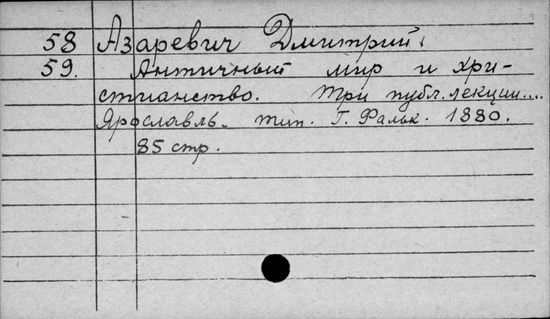 58 Азаревич Дмитрий.
59. Античный мир и хри-
стианство. Три публ. лекции....
Ярославль. тип. Г. Фальк. 1880.
85 стр.